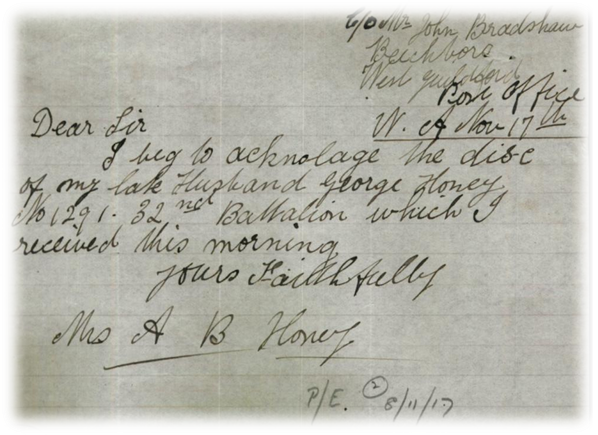 C/o Mr John Bradshaw
Beechboro
West Guildford
Post Office
W. A Nov 17th
Dear Sir
I beg to acknolage the disc
of my late Husband George Honey
No 1291. 32nd Battalion which I
received this morning
yours Faithfully
Mrs A B Honey
P/E. 2 8/11/17